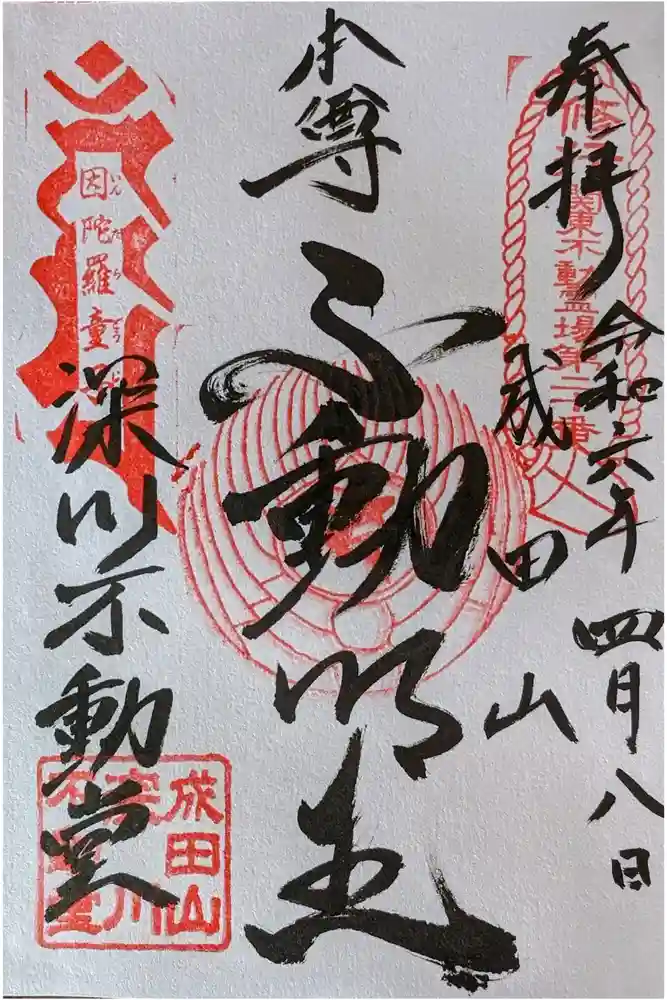 奉拝
令和六年四月八日
修行
関東不動霊場第二十番
成田山
本尊
不動明王
因陀羅童
いんだらどう
深川不動堂
成田山
深川
不動堂